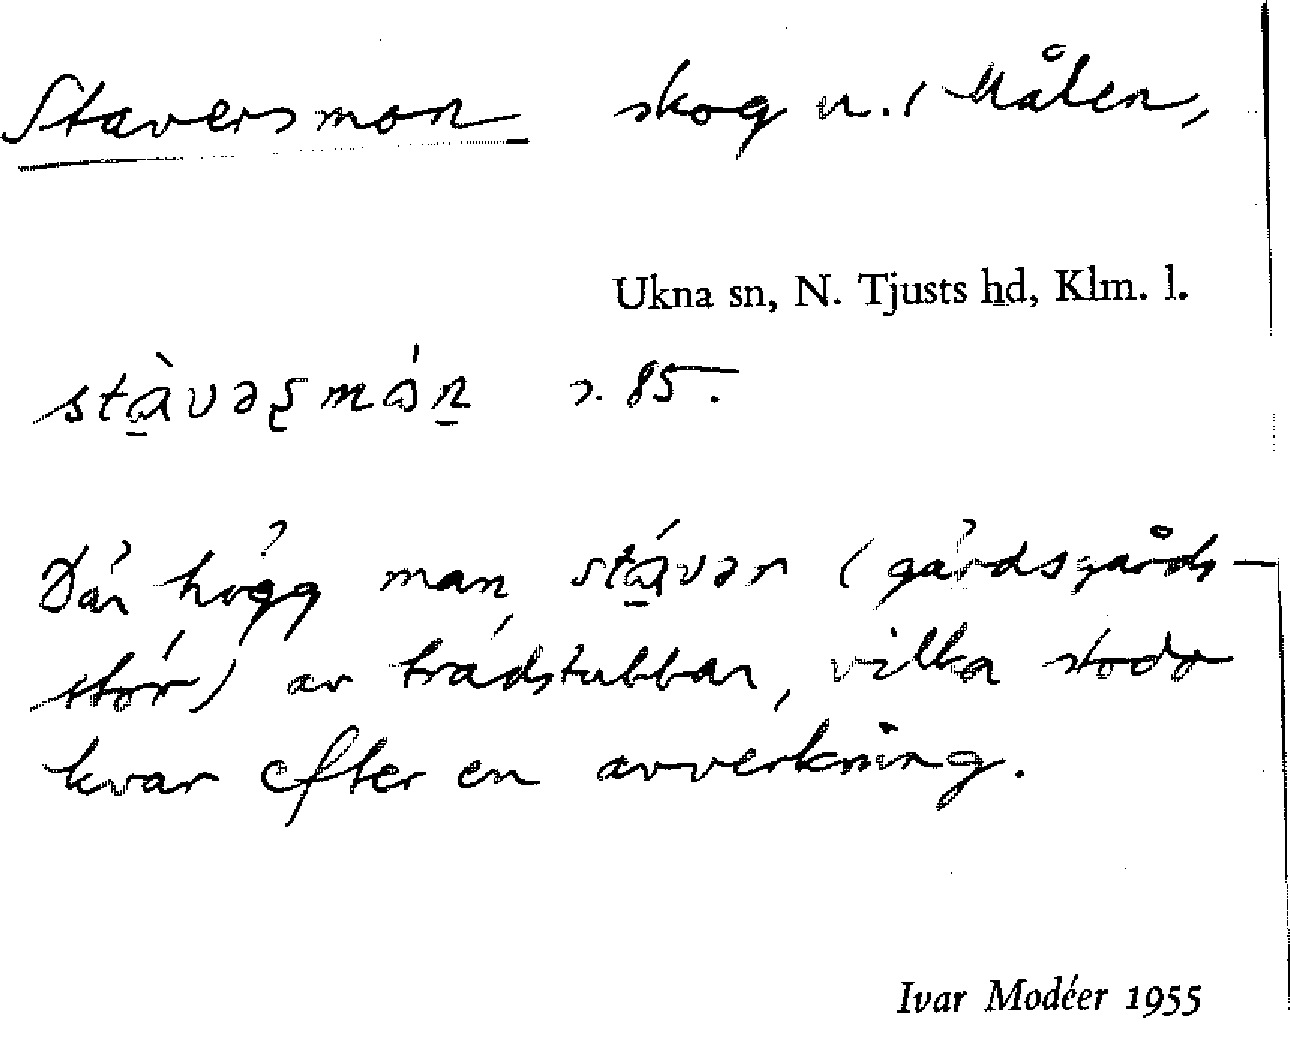 Staversmon skog u. Målen,
Ukna sn, N. Tjusts hd, Klm. l.
stàvəʂmón s. 85.
Där högg man stávər (gärdsgårds-
stör) av trädstubbar, vilka stodo
kvar efter en avverkning.
Ivar Modéer 1955